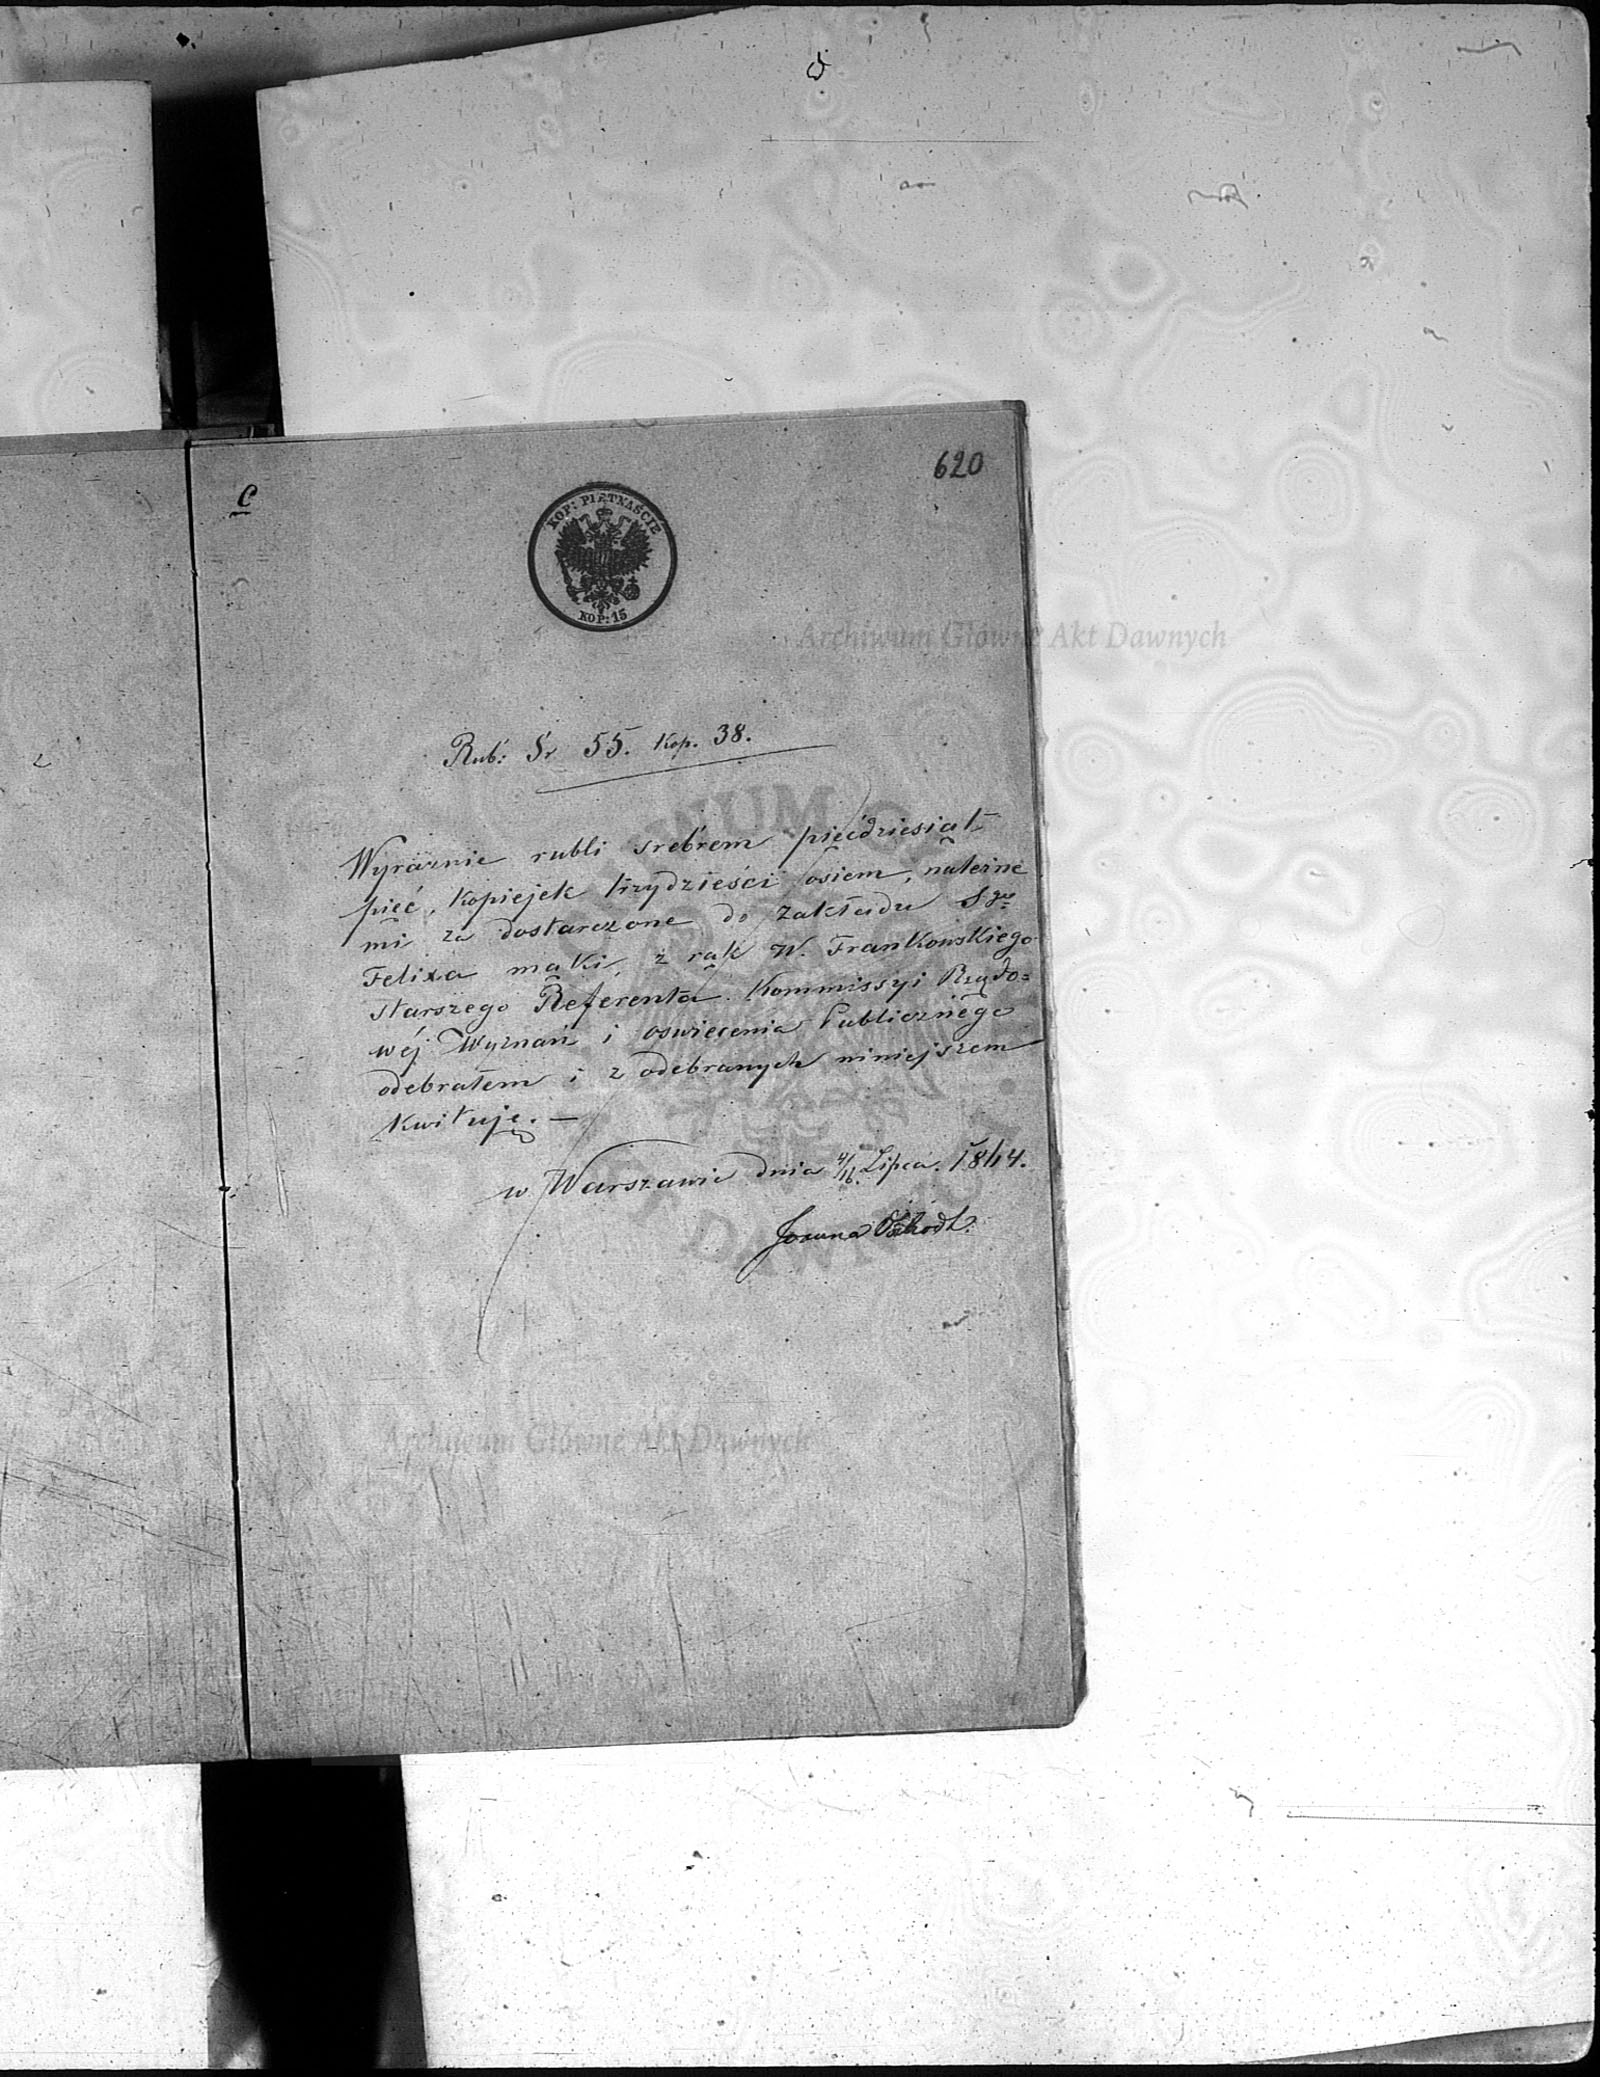 620
C
KOP: PIETNAŚCIE
KOP: 15
Archiwum Główne Akt Dawnych
Rub: Sr 55. Kop. 38.
Wyraznie rubli srebrem pięćdziesiąt
pięć, Kopiejek trzydzieści osiem, należne
mi za dostarczone do zakładu Sgo
Felixa mąki, z rąk W. Frankowskiego
starszego Referenta Kommissyi Rządo=
wéj Wyznań i oswiecenia Publicznego
odebrałem i z odebranych niniejszem
Kwituję. —
w Warszawie dnia 4/16 Lipca. 1864.
Joanna
Archiwum Główne Akt Dawnych